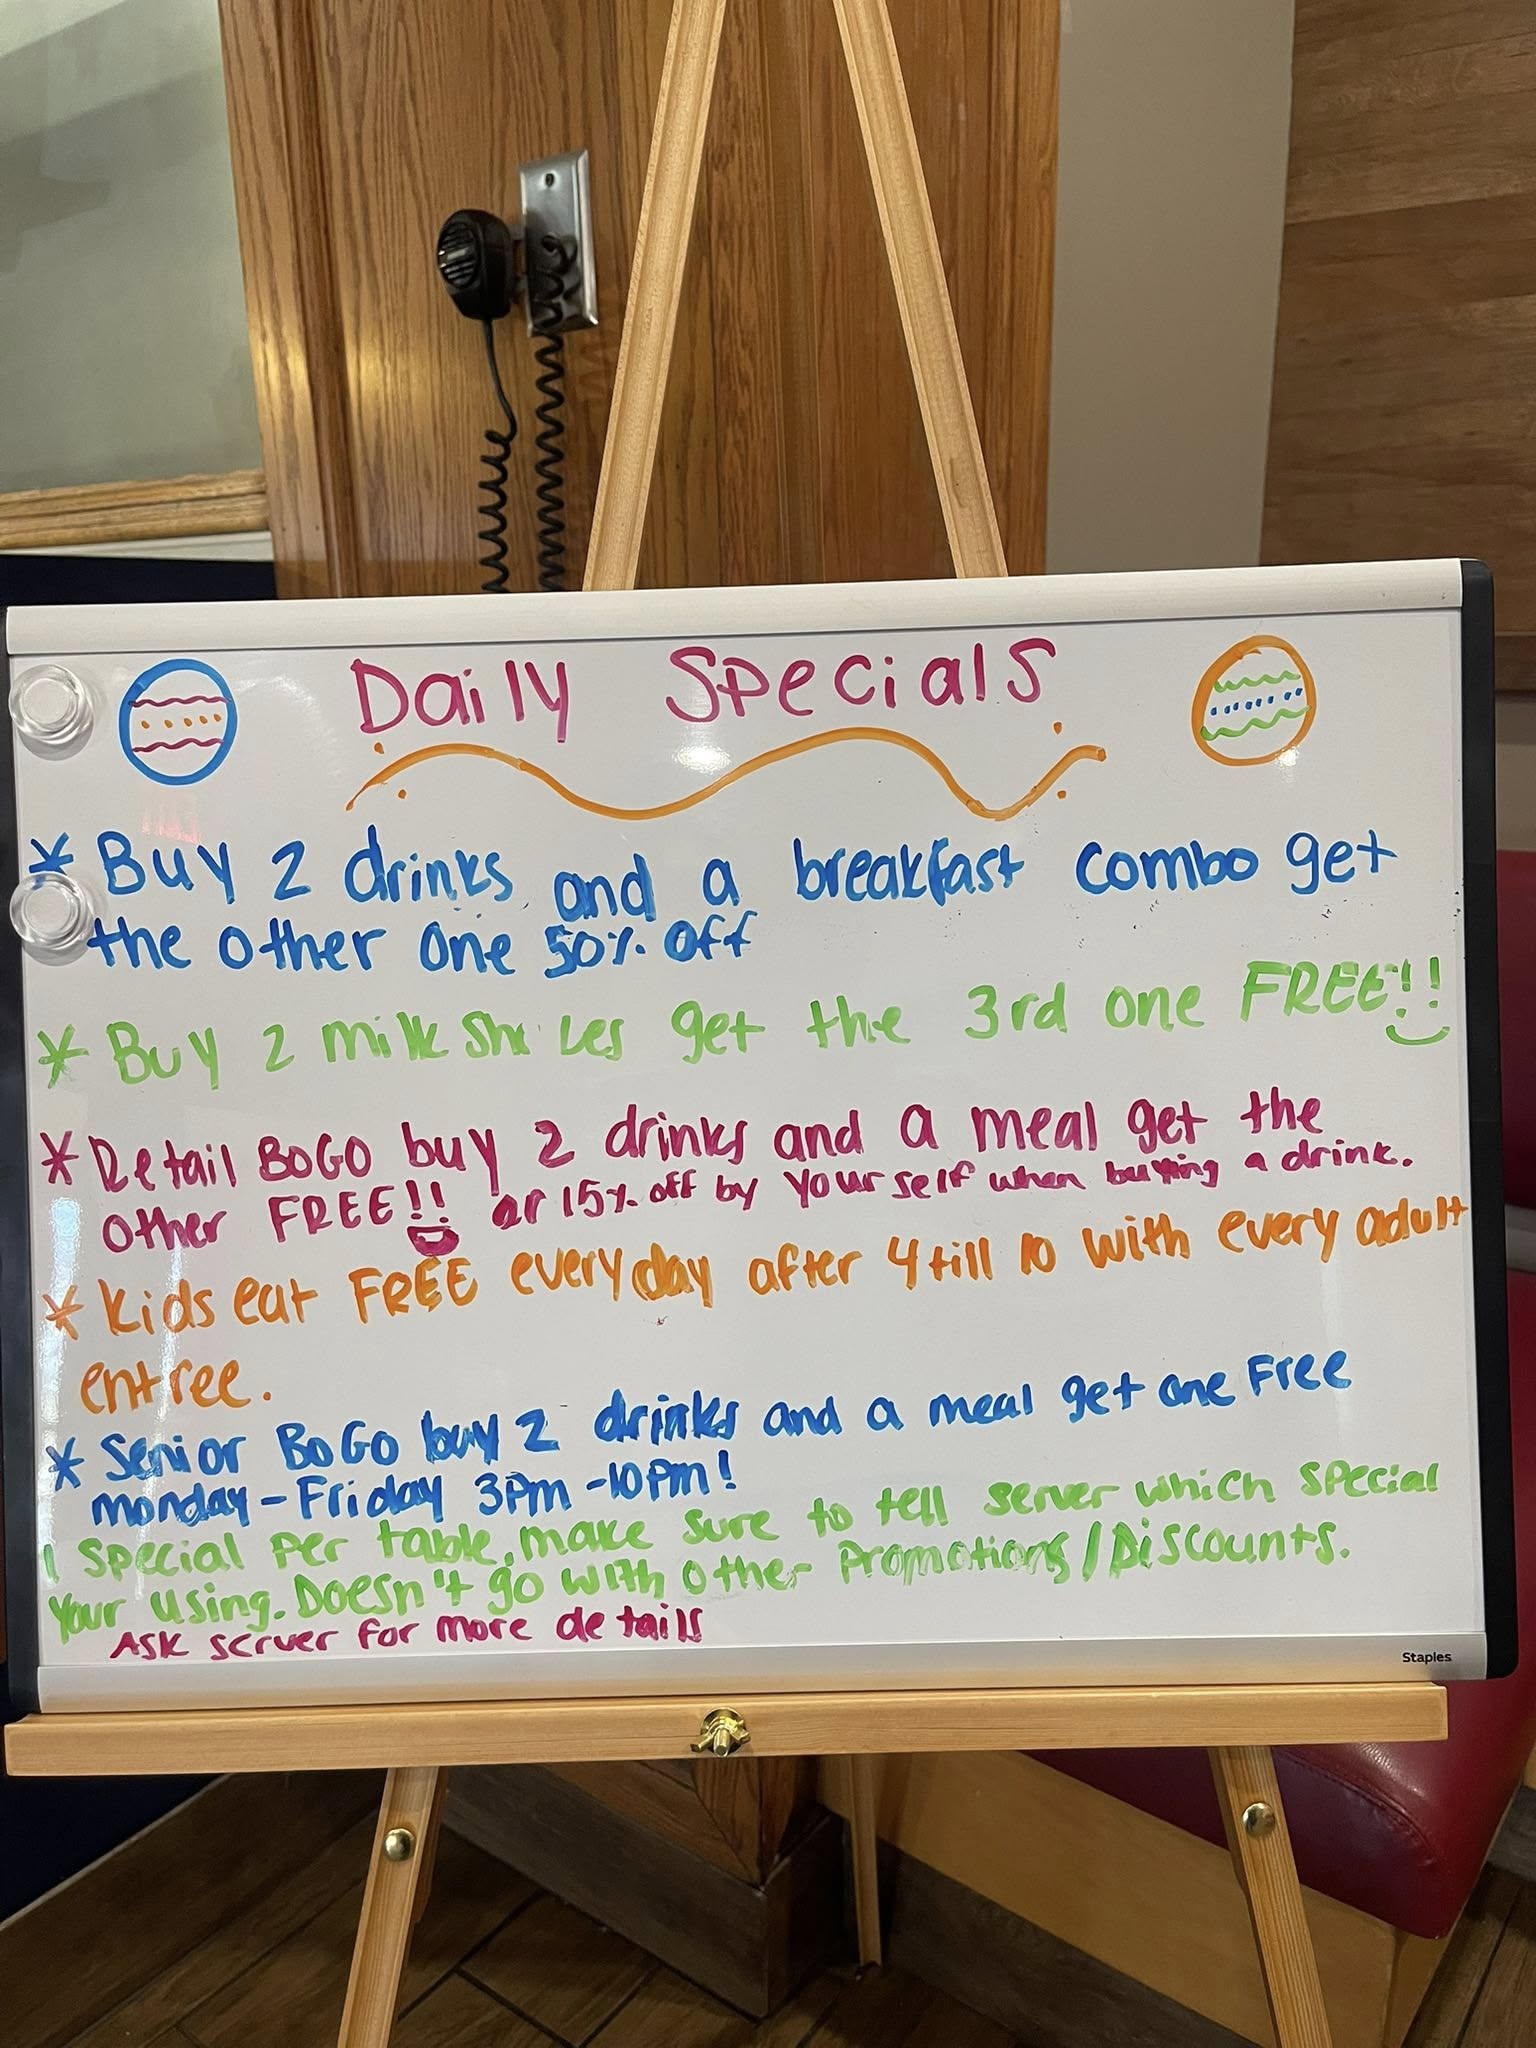 Daily Specials
* Buy 2 drinks and a breakfast combo get
the other one 50% off
* Buy 2 milkshakes get the 3rd one FREE!!
* Retail BOGO buy 2 drinks and a meal get the
other FREE!! or 15% off by your self when buying a drink.
* Kids eat FREE everyday after 4 till 10 with every adult
entree.
* Senior BOGO buy 2 drinks and a meal get one Free
monday - Friday 3pm - 10pm!
1 special per table, make sure to tell server which special
your using. Doesn't go with other promotions/Discounts.
Ask server for more details
Staples